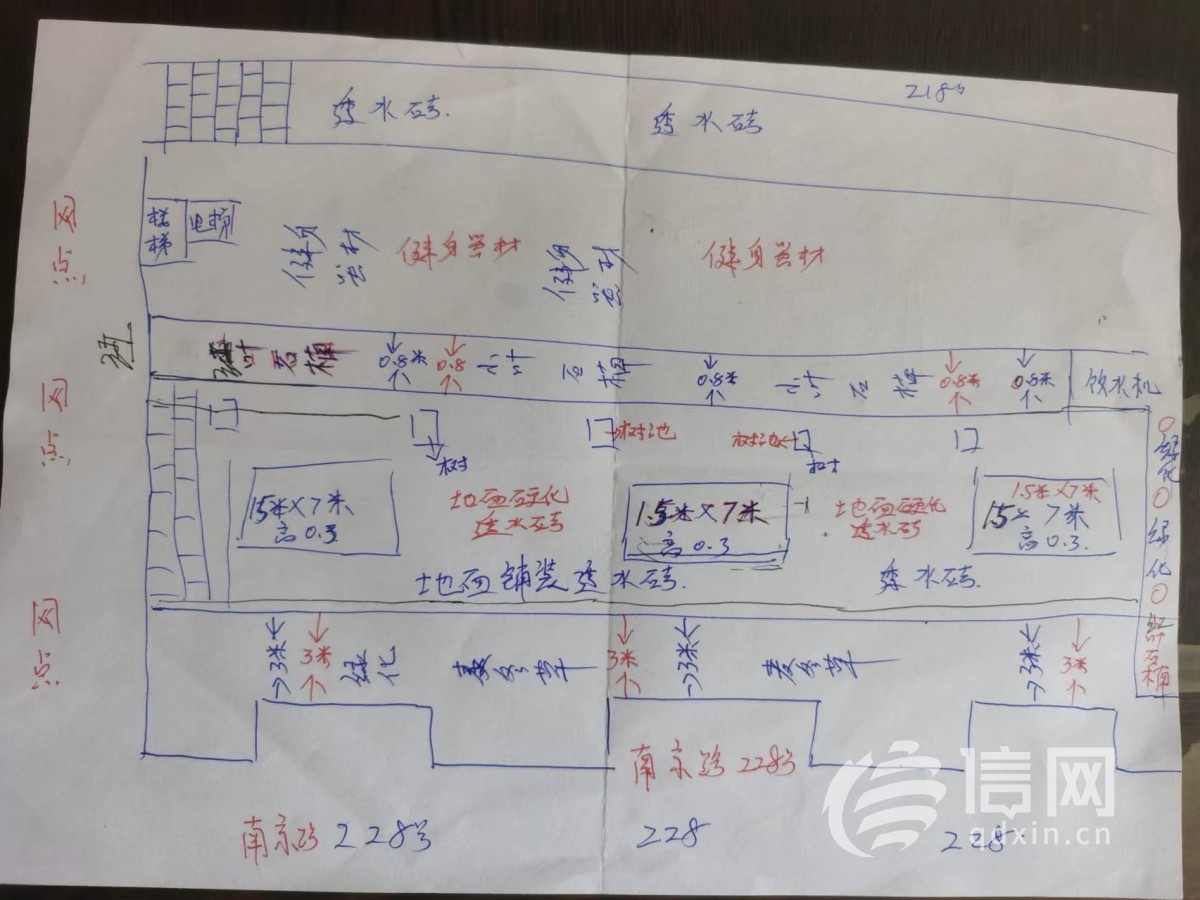 218号
透水砖.
透水砖
网点
楼梯
电梯
健身器材
健身器材
健身器材
健身器材
小叶石楠
0.8米
0.8
小叶
石楠
0.8米
小叶
石楠
0.8米
0.8米
饮水机
网点
树池
树池
树
树
绿化
绿化
红石楠
15米×7米
高0.3
地面硬化
透水砖
1.5米×7米
高0.3
地面硬化
透水砖
15米×7米
15×7米
高0.3.
地面铺装透水砖.
透水砖.
网点
3米
3米
绿化
麦冬草
3米
3米
麦冬草
3米
3米
南京路228号
南京路228号
228
228
信网
qdxin.cn